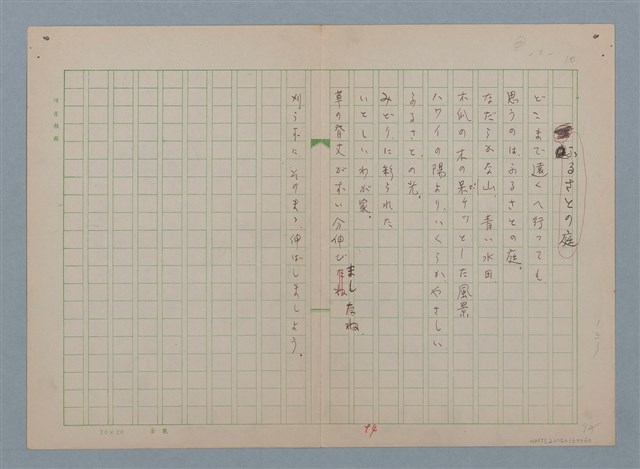 ふるさとの庭
どこまで遠くへ行っても
思うのは、ふるさとの庭。
なだらかな山、青い水田、
木瓜の木の 風景
ハワイの陽より、いくらかやさしい
ふるさとの光。
みどりに彩られた
いとしいわが家。
草の背丈がずい分伸びましたね、
刈らずに そのまゝ伸ばしましょう。
20×20